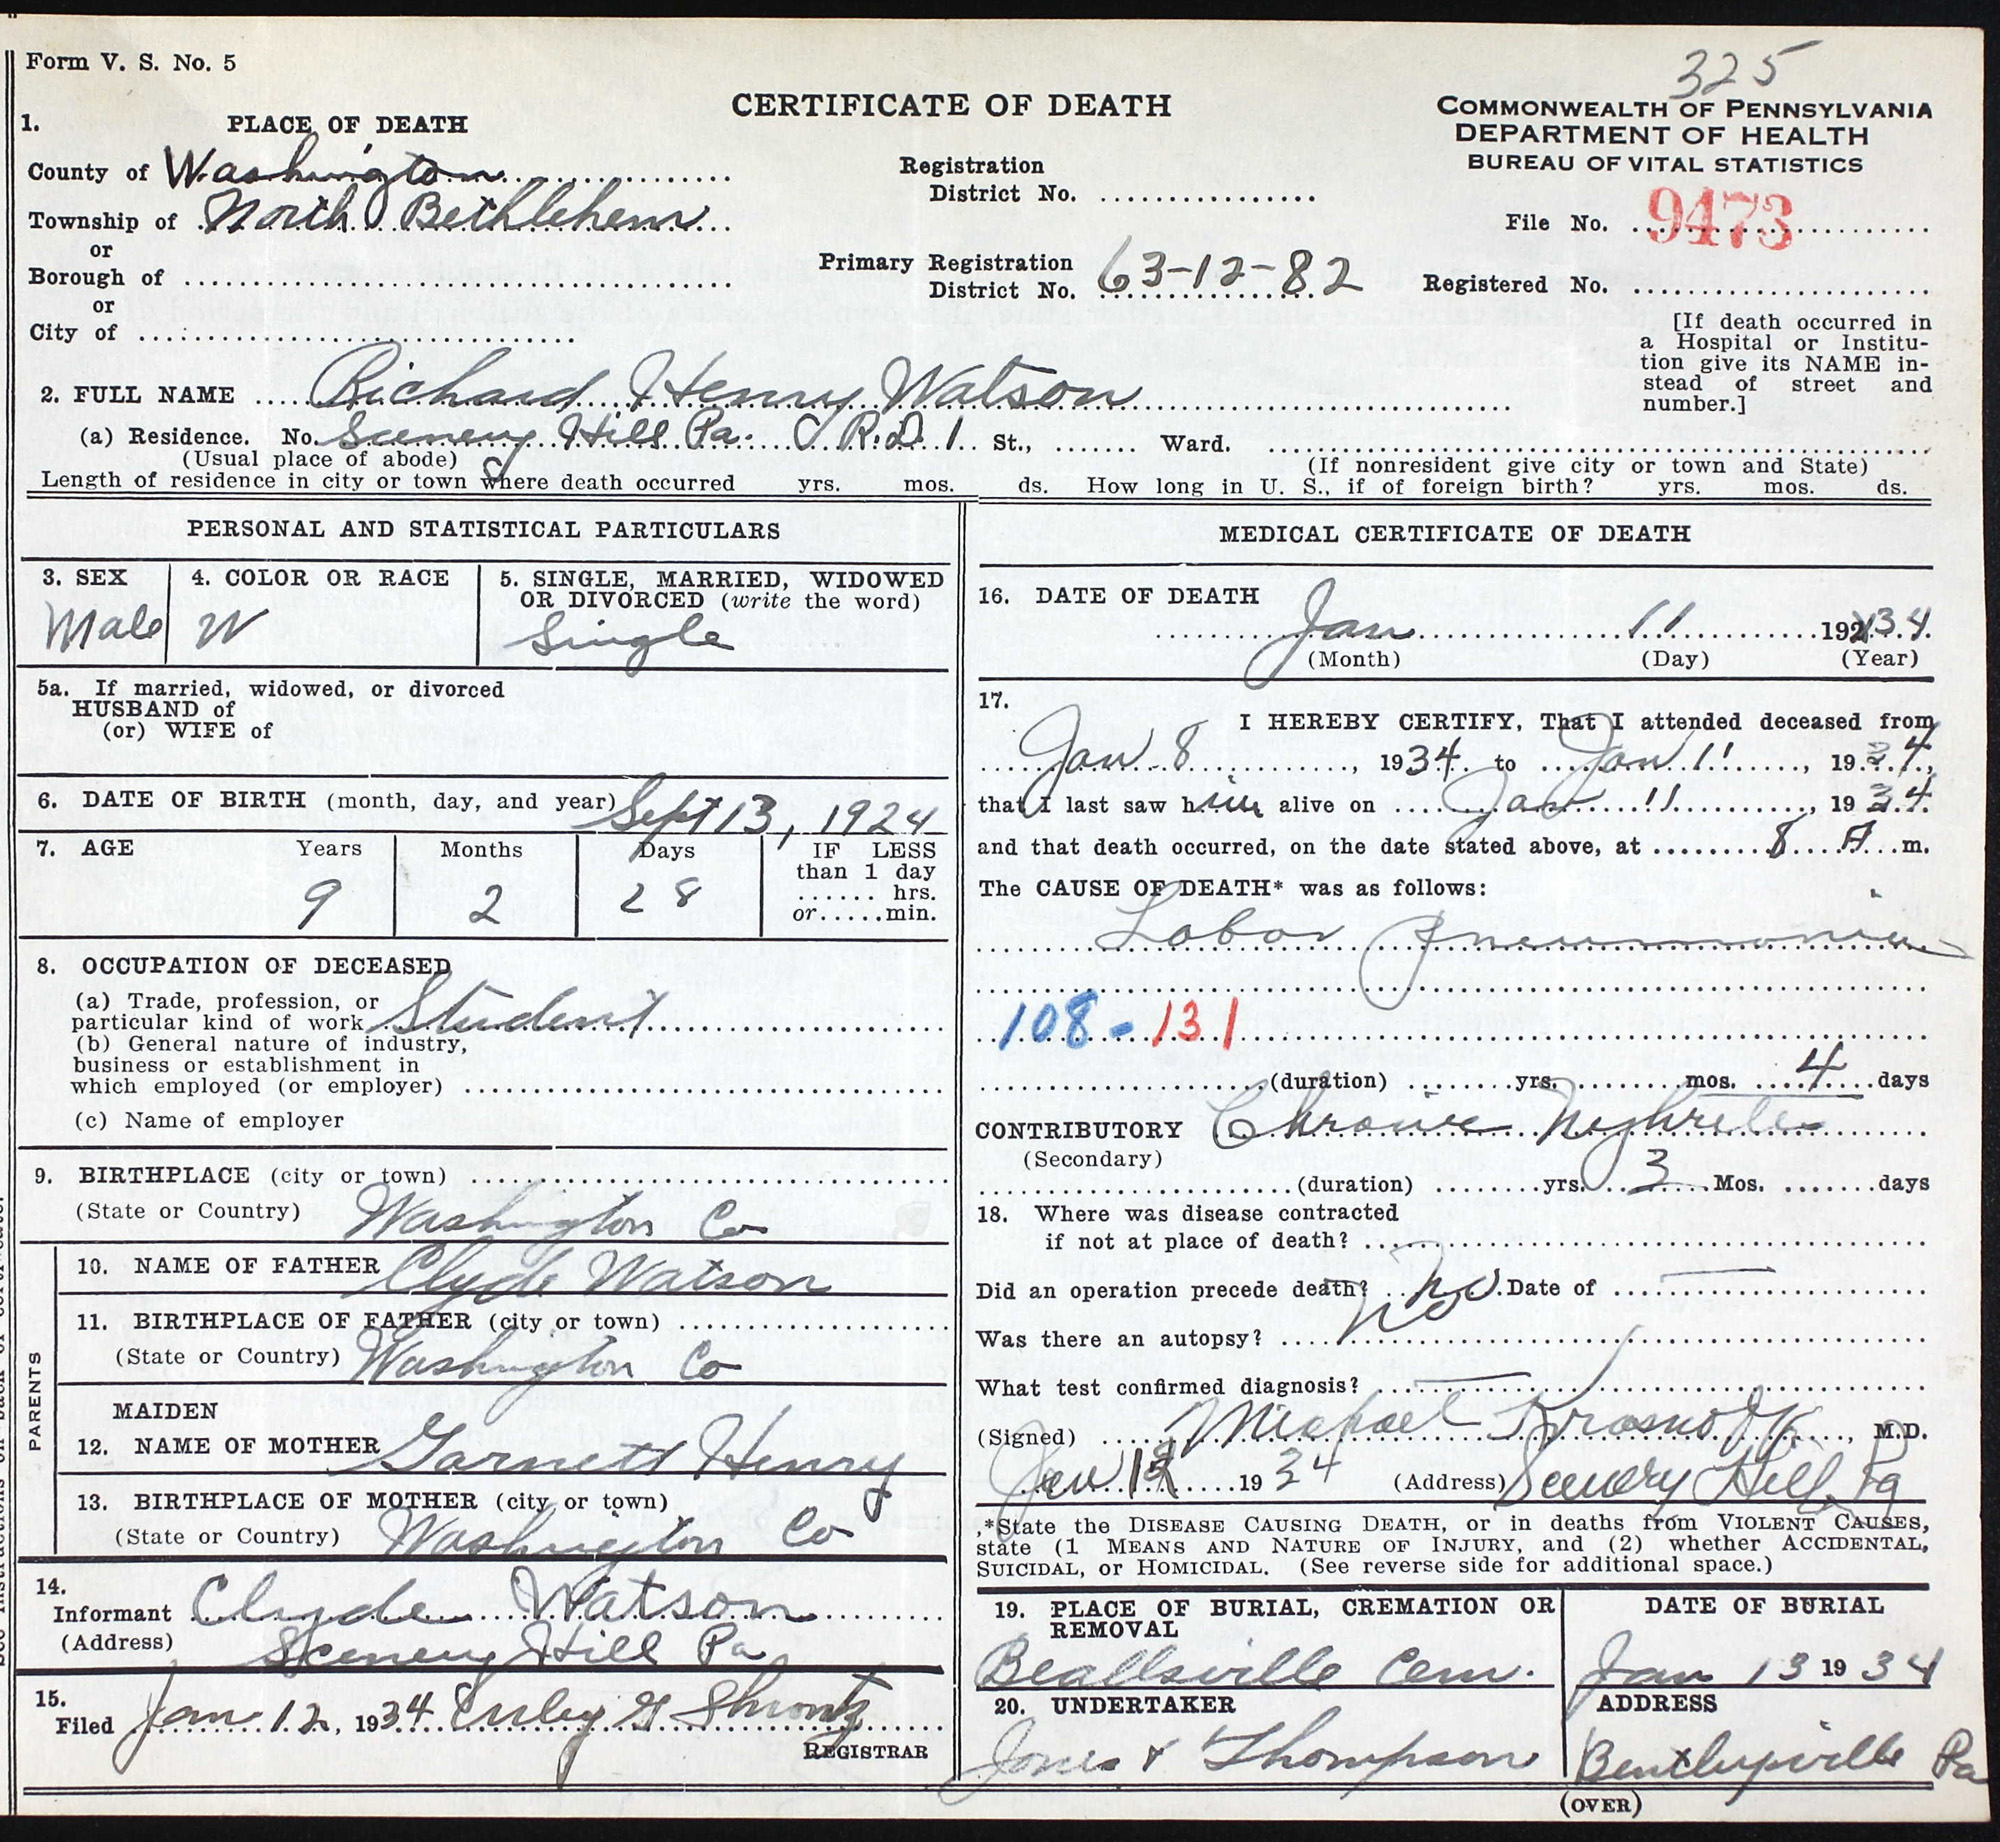 325
Form V. S. No. 5
CERTIFICATE OF DEATH
COMMONWEALTH OF PENNSYLVANIA
DEPARTMENT OF HEALTH
BUREAU OF VITAL STATISTICS
1. PLACE OF DEATH
County of Washington
Township of North Bethlehem
or
Borough of
or
City of
Registration
District No.
Primary Registration
District No. 63-12-82
File No. 9473
Registered No.
[If death occurred in
a Hospital or Institu-
tion give its NAME in-
stead of street and
number.]
2. FULL NAME Richard Henry Watson
(a) Residence. No. Scenery Hill Pa. R.D. 1 St., Ward.
(Usual place of abode) (If nonresident give city or town and State)
Length of residence in city or town where death occurred yrs. mos. ds. How long in U. S., if of foreign birth? yrs. mos. ds.
PERSONAL AND STATISTICAL PARTICULARS
3. SEX 4. COLOR OR RACE 5. SINGLE, MARRIED, WIDOWED
OR DIVORCED (write the word)
Male W Single
5a. If married, widowed, or divorced
HUSBAND of
(or) WIFE of
6. DATE OF BIRTH (month, day, and year) Sept 13, 1924
7. AGE Years Months Days IF LESS
than 1 day
hrs.
or min.
9 2 28
8. OCCUPATION OF DECEASED
(a) Trade, profession, or
particular kind of work Student
(b) General nature of industry,
business or establishment in
which employed (or employer)
(c) Name of employer
9. BIRTHPLACE (city or town)
(State or Country) Washington Co
PARENTS
10. NAME OF FATHER Clyde Watson
11. BIRTHPLACE OF FATHER (city or town)
(State or Country) Washington Co
MAIDEN
12. NAME OF MOTHER Garnett Henry
13. BIRTHPLACE OF MOTHER (city or town)
(State or Country) Washington Co
14.
Informant Clyde Watson
(Address) Scenery Hill Pa
15.
Filed Jan 12, 1934 G Shrontz
REGISTRAR
MEDICAL CERTIFICATE OF DEATH
16. DATE OF DEATH
Jan 11 1934
(Month) (Day) (Year)
17.
I HEREBY CERTIFY, That I attended deceased from
Jan 8, 1934 to Jan 11, 1934,
that I last saw him alive on Jan 11, 1934
and that death occurred, on the date stated above, at 8 A m.
The CAUSE OF DEATH* was as follows:
Lobar Pneumonia
108-131
(duration) yrs. mos. 4 days
CONTRIBUTORY Chronic Nephritis
(Secondary)
(duration) yrs. 3 Mos. days
18. Where was disease contracted
if not at place of death?
Did an operation precede death? No Date of
Was there an autopsy? No
What test confirmed diagnosis?
(Signed) Michael Krosnoff, M.D.
Jan 12 1934 (Address) Scenery Hill, Pa
*State the DISEASE CAUSING DEATH, or in deaths from VIOLENT CAUSES,
state (1 MEANS AND NATURE OF INJURY, and (2) whether ACCIDENTAL,
SUICIDAL, or HOMICIDAL. (See reverse side for additional space.)
19. PLACE OF BURIAL, CREMATION OR
REMOVAL
Beallsville Cem.
DATE OF BURIAL
Jan 13 1934
20. UNDERTAKER
Jones & Thompson
ADDRESS
Bentleyville Pa
(OVER)